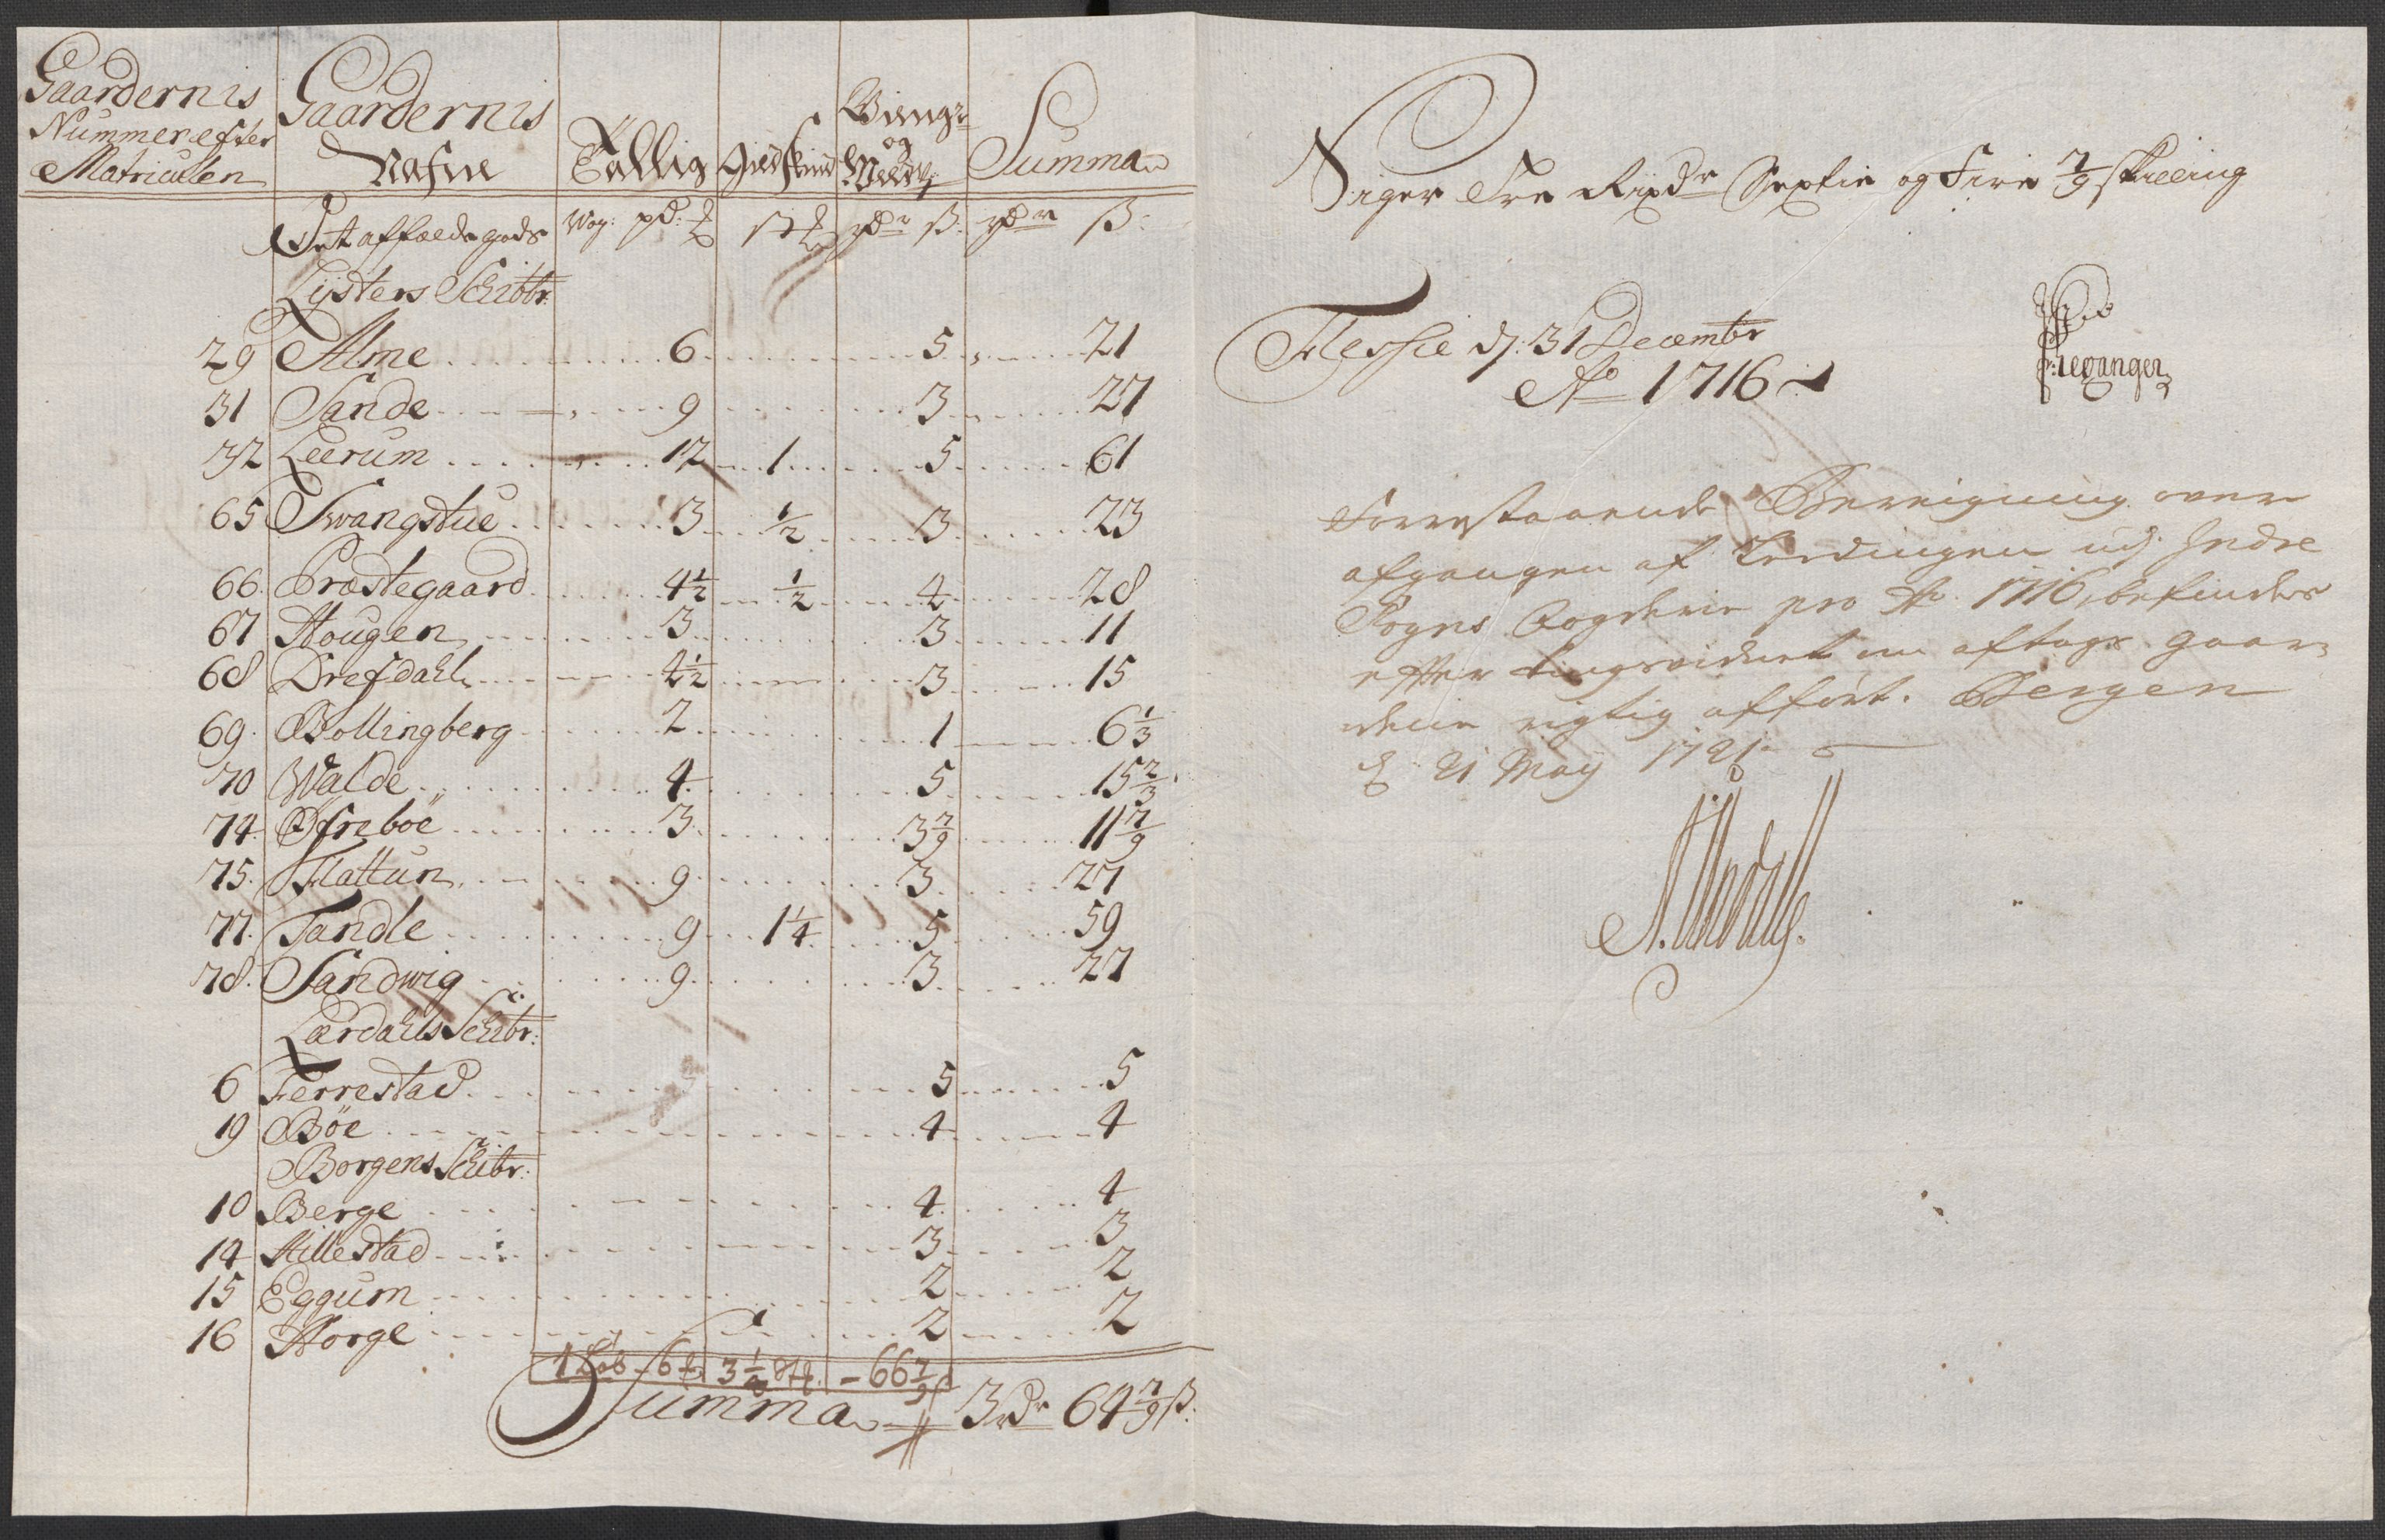 Gaardernis Nummer efter Matriculen | Gaardernis Nafne | Tallig | Giedskind | Biug og | Summa
Det affældegods | Wog: pd: | | rdr ß | rdr ß:
Lysters Schibbr:
29 Alme 6 5 21
31 Sande 9 3 27
32 Leerum 12 1 5 61
65 Svangstue 3 1/2 3 23
66. Præstegaard 4 1/2 1/2 4 28
67 Hougen 3 3 11
68 Drefsdahl 4 1/2 3 15
69. Bollingberg 2 1 6 1/3
70 Walde 4 5 15 2/3
74. Øfreboe 3 3 7/9 11 7/9
75. Flattun 9 3 27
77. Tandle 9 1 1/4 5 59
78. Sandwig 9 3 27
Lærdahls Schibr:
6 Ferrestad 5 5
19 Bøe 4 4
Borgens Schibr:
10 Berge 4 4
14 Hillestad 3 3
15 Eggum 2 2
16 Horge 2 2
1 Løb 6 3 1/4 - 66 7/9
Summa 3 rdr 64 7/9 ß.
Siger Tre Rixdr Sextie og Fire 7/9 skilling
Flessie d: 31 Decembr
Ao 1716
Leganger
Forrestaaende Bereigning over
afgangen af Leedingen udj Indre
Sogns Fogderie pro Ao. 1716, befindes
efter tingsvidnet om aftags gaar-
dene rigtig afført. Bergen
d 21 May 1721